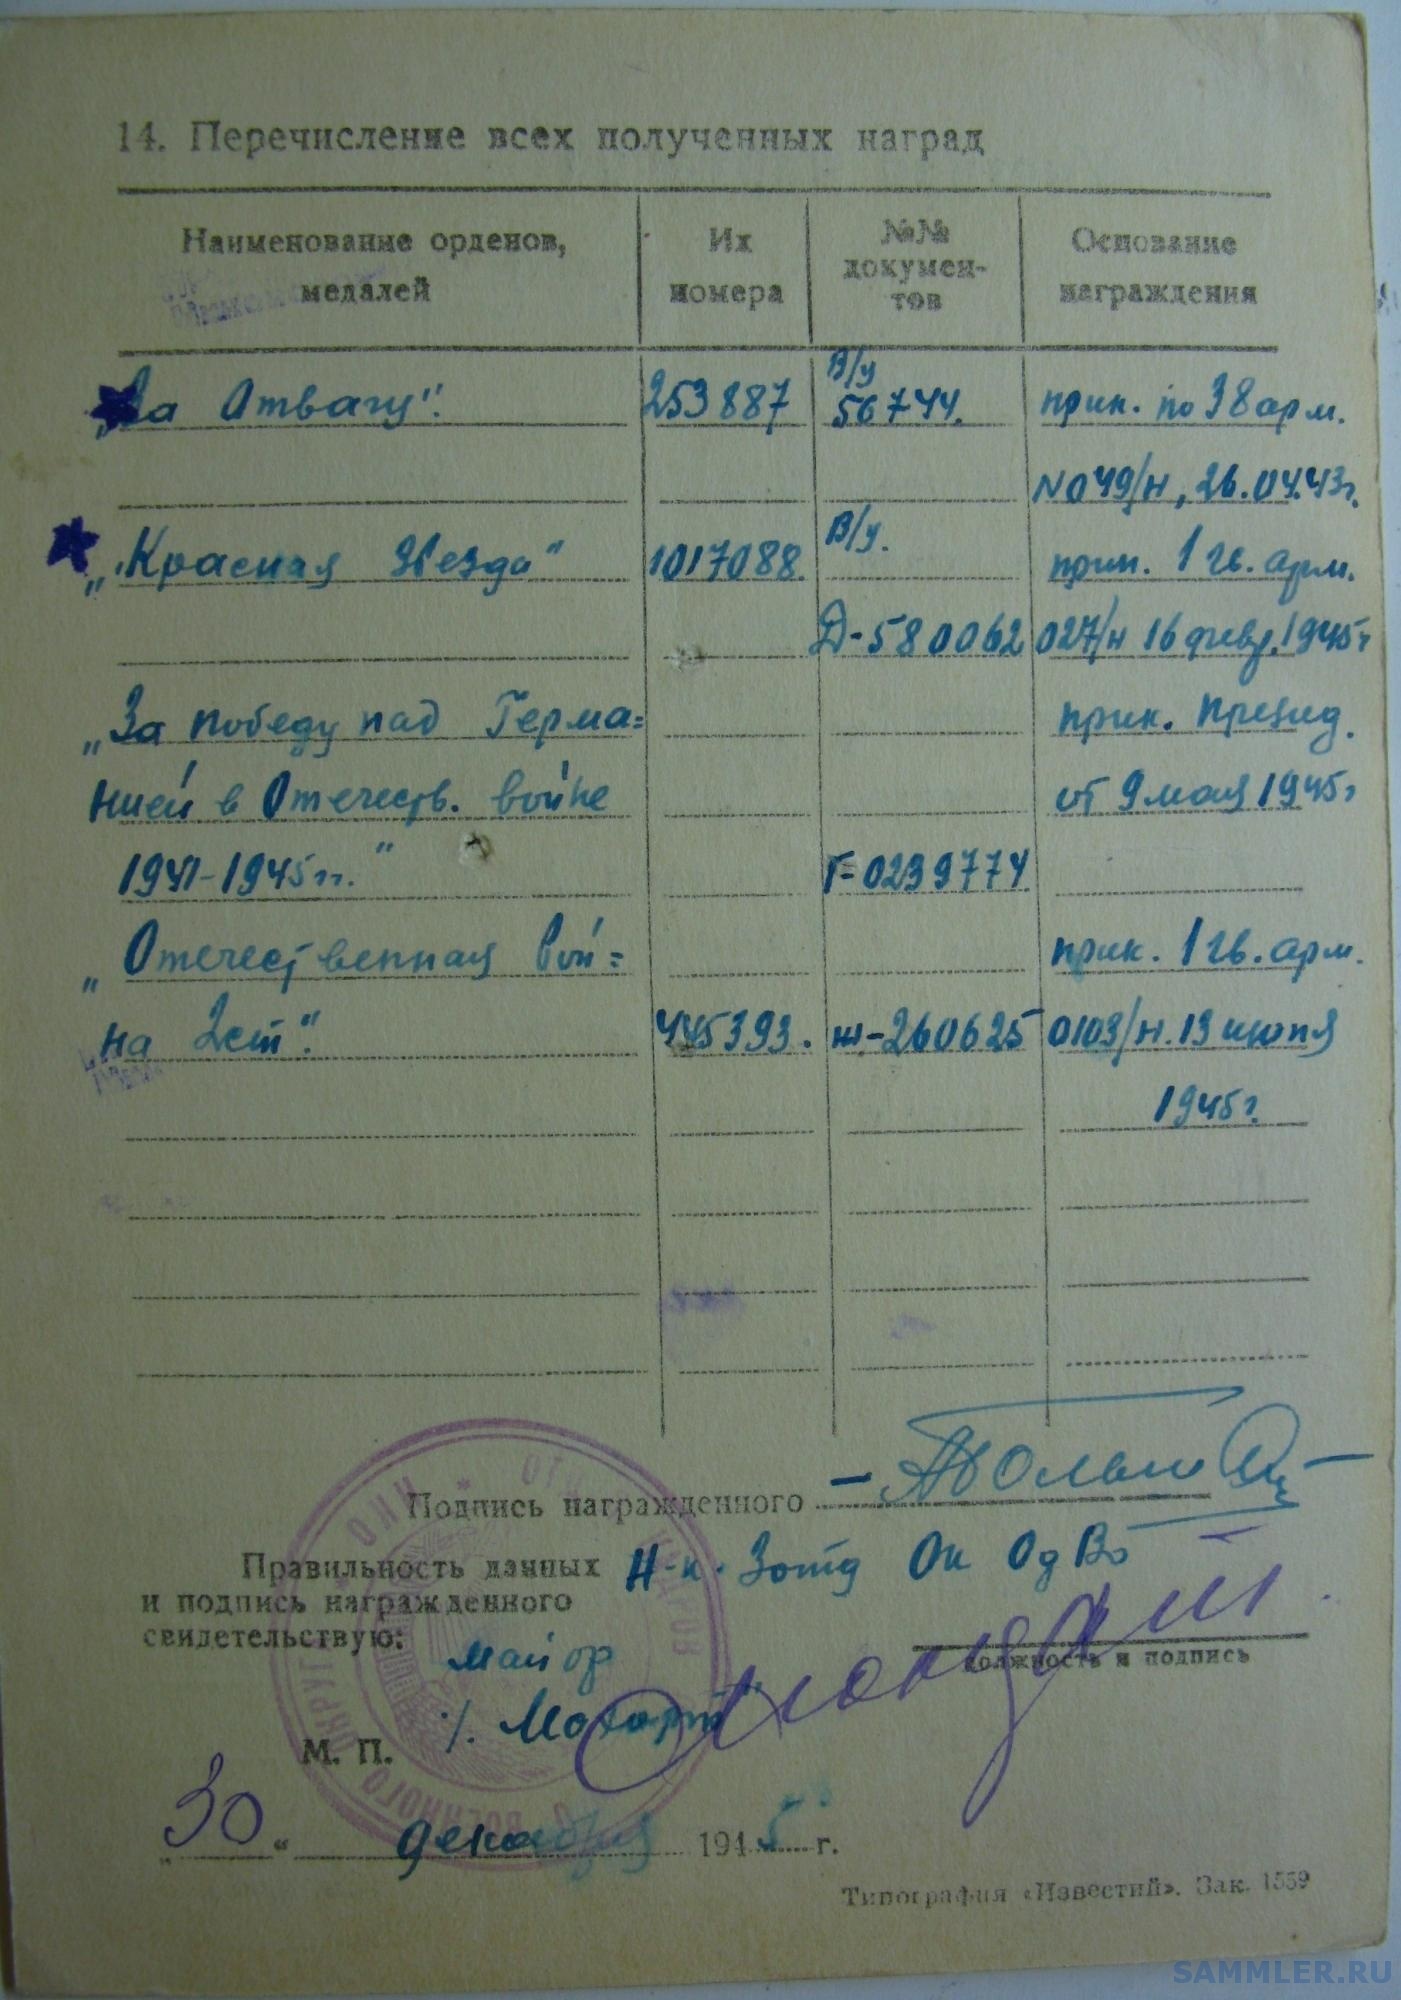 14. Перечисление всех полученных наград
Наименование орденов, медалей
Их номера
№№ докумен-тов
Основание награждения
„За Отвагу". 253887 В/у 56744. прик. по 38 арм.
№ 049/н, 26.04.43г.
„Красная Звезда" 1017088. В/у. прик. 1 гв. арм.
Д-580062 027/н 16 февр. 1945г
„За победу над Герма= прик. Презид.
нией в Отечеств. войне от 9 мая 1945г
1941-1945гг." Г=0239774
„Отечественная Вой= прик. 1 гв. арм.
на 2ст". 445393. ш-260625 0103/н. 13 июня
1945г.
Подпись награжденного
Правильность данных Н-к. 3 отд Ок ОдВо
и подпись награжденного
свидетельствую:
должность и подпись
майор
М. П.
„30" декабря 1945 г.
Типография «Известий». Зак. 1559
SAMMLER.RU